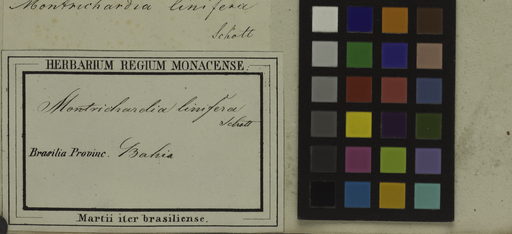 Montrichardia linifera
Schott
HERBARIUM REGIUM MONACENSE.
Montrichardia linifera
Schott
Brasilia Provinc. Bahia
Martii iter brasiliense.